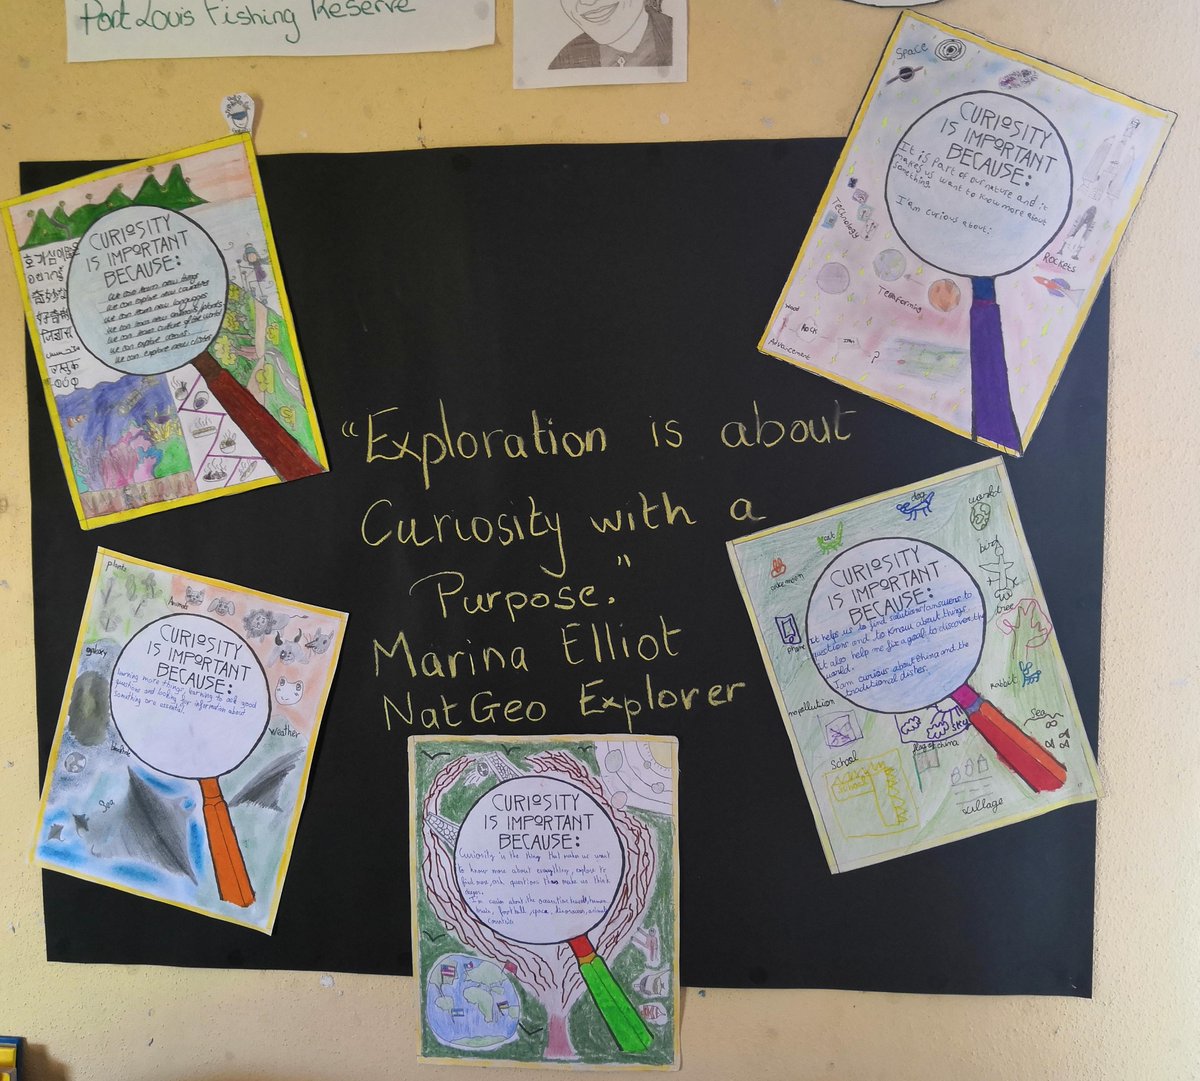 Port Louis Fishing Reserve
"Exploration is about
Curiosity with a
Purpose."
Marina Elliot
NatGeo Explorer
CURIOSITY
IS IMPORTANT
BECAUSE:
We can learn new things
We can explore new countries
We can learn new languages
We can learn new animals/plants
We can learn culture of the world
We can explore
We can explore new
호기심이 많은
जिज्ञासु
Space
CURIOSITY
IS IMPORTANT
BECAUSE:
It is part of our nature and it
makes us want to know more about
something.
I'am curious about:
Technology
Rockets
Terraforming
Wood
Rock
Iron
?
Advancement
plants
Animals
CURIOSITY
IS IMPORTANT
BECAUSE:
learning more things, learning to ask good
questions and looking for information about
something are essential.
weather
Sea
CURIOSITY
IS IMPORTANT
BECAUSE:
Curiosity is the thing that makes us want
to know more about everything, explore to
find more, ask questions that make us think
deeper.
brain, football, space, dinosaurs, animals
dog
world
cat
bird
CURIOSITY
IS IMPORTANT
BECAUSE:
It helps us to find solutions/answers to
questions and to know about things.
it also help me fix a goal to discover the
world.
I am curious about China and the
traditional dishes.
tree
phone
rabbit
no pollution
sky
Sea
flag of china
School
school
village